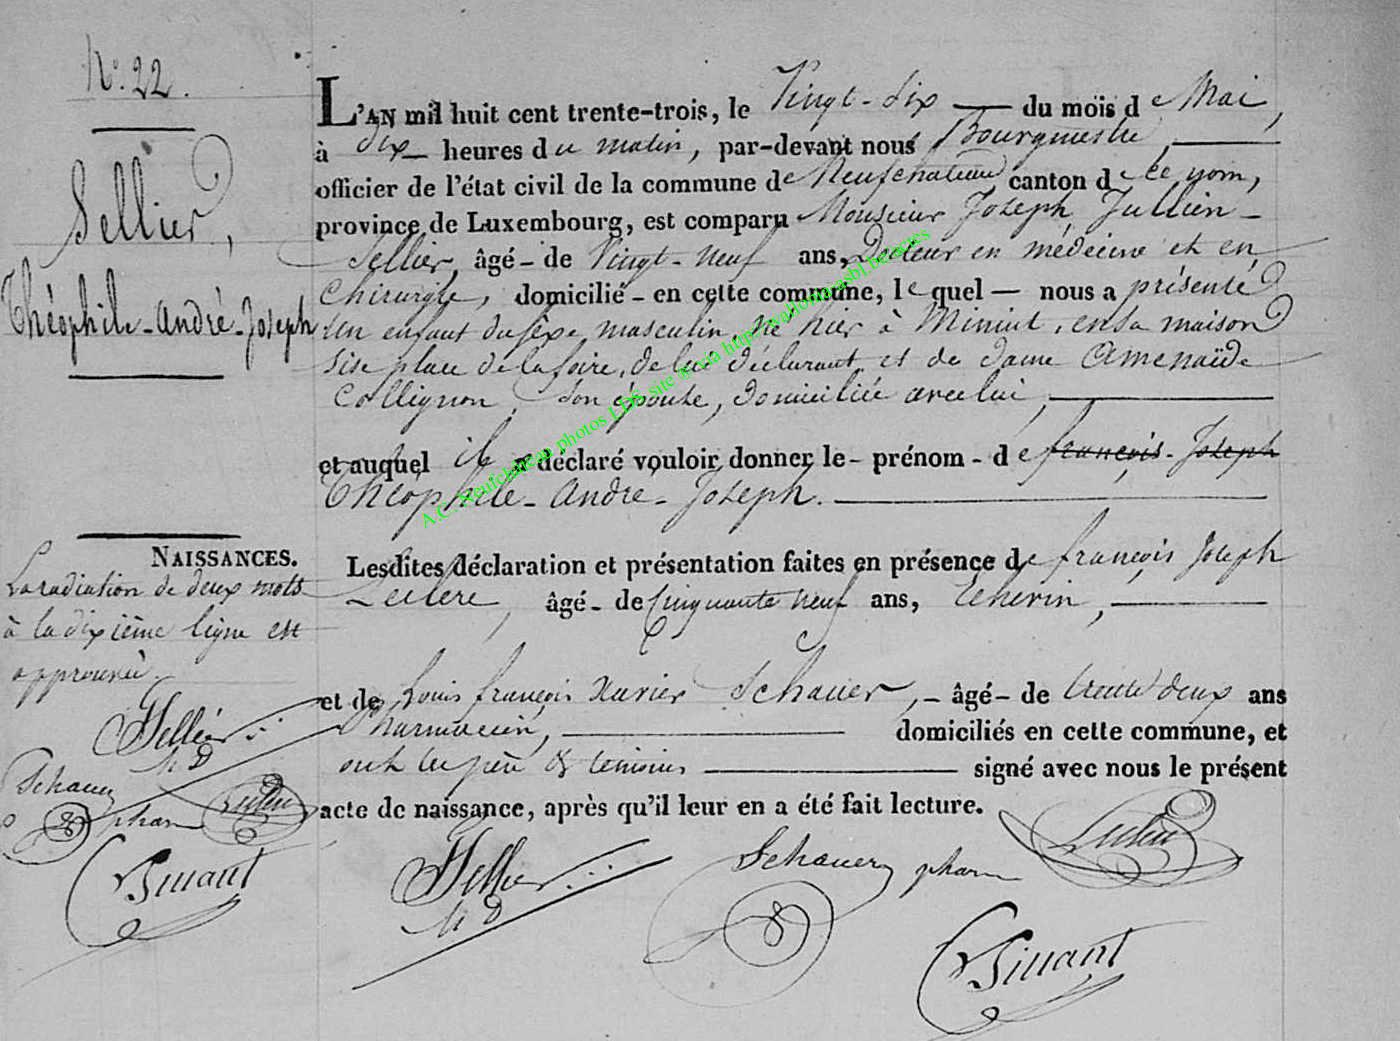 N.° 22.
Sellier,
Théophile-André-Joseph
L'AN mil huit cent trente-trois, le Vingt-Six du mois de Mai,
à dix heures du matin, par-devant nous Bourgmestre,
officier de l'état civil de la commune de Neufchateau canton de ce nom,
province de Luxembourg, est comparu Monsieur Joseph Jullien-
Sellier, âgé-de Vingt-neuf ans, Docteur en médecine et en
Chirurgie, domicilié-en cette commune, lequel nous a présenté
Un enfant du sexe masculin, né hier à Minuit, en sa maison
sise place de la foire, de lui déclarant et de dame Amenaïde
Collignon, son épouse, domiciliée avec lui,
et auquel il a déclaré vouloir donner le-prénom-de françois-Joseph
Théophile-André-Joseph.
A.C. Neufchâteau photos LDS site via http://wallonia-asbl.be/actes
NAISSANCES.
La radiation de deux mots
à la dixième ligne est
approuvée.
Sellier
M D
Schauer
pharm
Lesdites déclaration et présentation faites en présence de françois Joseph
Leclere, âgé-de Cinquante neuf ans,
et de Louis françois Xavier Schauer, -âgé-de trente deux ans
Pharmacien, domiciliés en cette commune, et
ont les père & témoins signé avec nous le présent
acte de naissance, après qu'il leur en a été fait lecture.
Sellier
M D
Schauer pharm